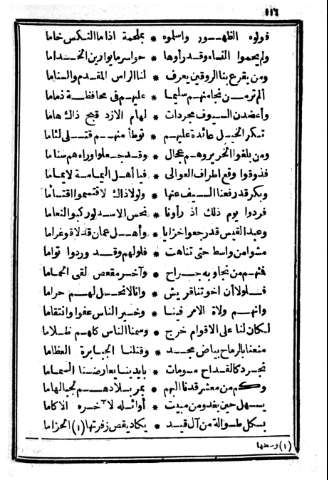 ١١٦
فولوه الظهور واسلموه * بملحمة اذا ما النكس خاما
ولم يحموا النساء وقد رأوها * حواسر ما يوارين الخداما
ومن يقرع بنا الروقين يعرف * لنا الراس المقدم والسناما
ألم ترمن نجا منهم سليما * عليهم فى محافظة ذماما
وأعضدن السيوف مجردات * لهام الازد قبح ذاك هاما
تكر الخيل عائدة عليهم * توطأ منهم قتلى لئاما
ومن بلغوا الحريروهم عجال * وقد جعلوا وراءهم سناما
فذوقوا وقع اطراف العوالى * فيا أهل اليمامة لا يماما
وبكر قد رفعنا السيف عنها * ولولا ذاك لاقتسموا اقتساما
فردوا يوم ذلك اذ رأونا * نحس الاسد لو ركبوا النعاما
وعبد القيس قد رجعوا خزايا * وأهل عمان قد لاقوا غراما
مشوا من واسط حتى تناهت * فلولهم وقد وردوا تواما
فمنهم من نجا وبه جراح * وآخر مقعص لقى الحماما
فلولا أن اخوتنا قريش * وانا لا نحل لهم حراما
وانهم ولاة الامر فينا * وخير الناس عفوا وانتقاما
لكان لنا على الاقوام خرج * وسمنا الناس كلهم ظلاما
منعنا بالرماح بياض نجد * وقتلنا الجبابرة العظاما
نجرد كالقداح مسومات * بايدينا يعارضن السماما
وكم من معشر قدنا اليهم * بمر بلادهم لجبا لهاما
يسهل حين يغدو من مبيت * أوائله لآخره الاكاما
بكل طوالة من آل قيد * يكاد يقض زفرتها (١) الحزاما
(١) وسطها